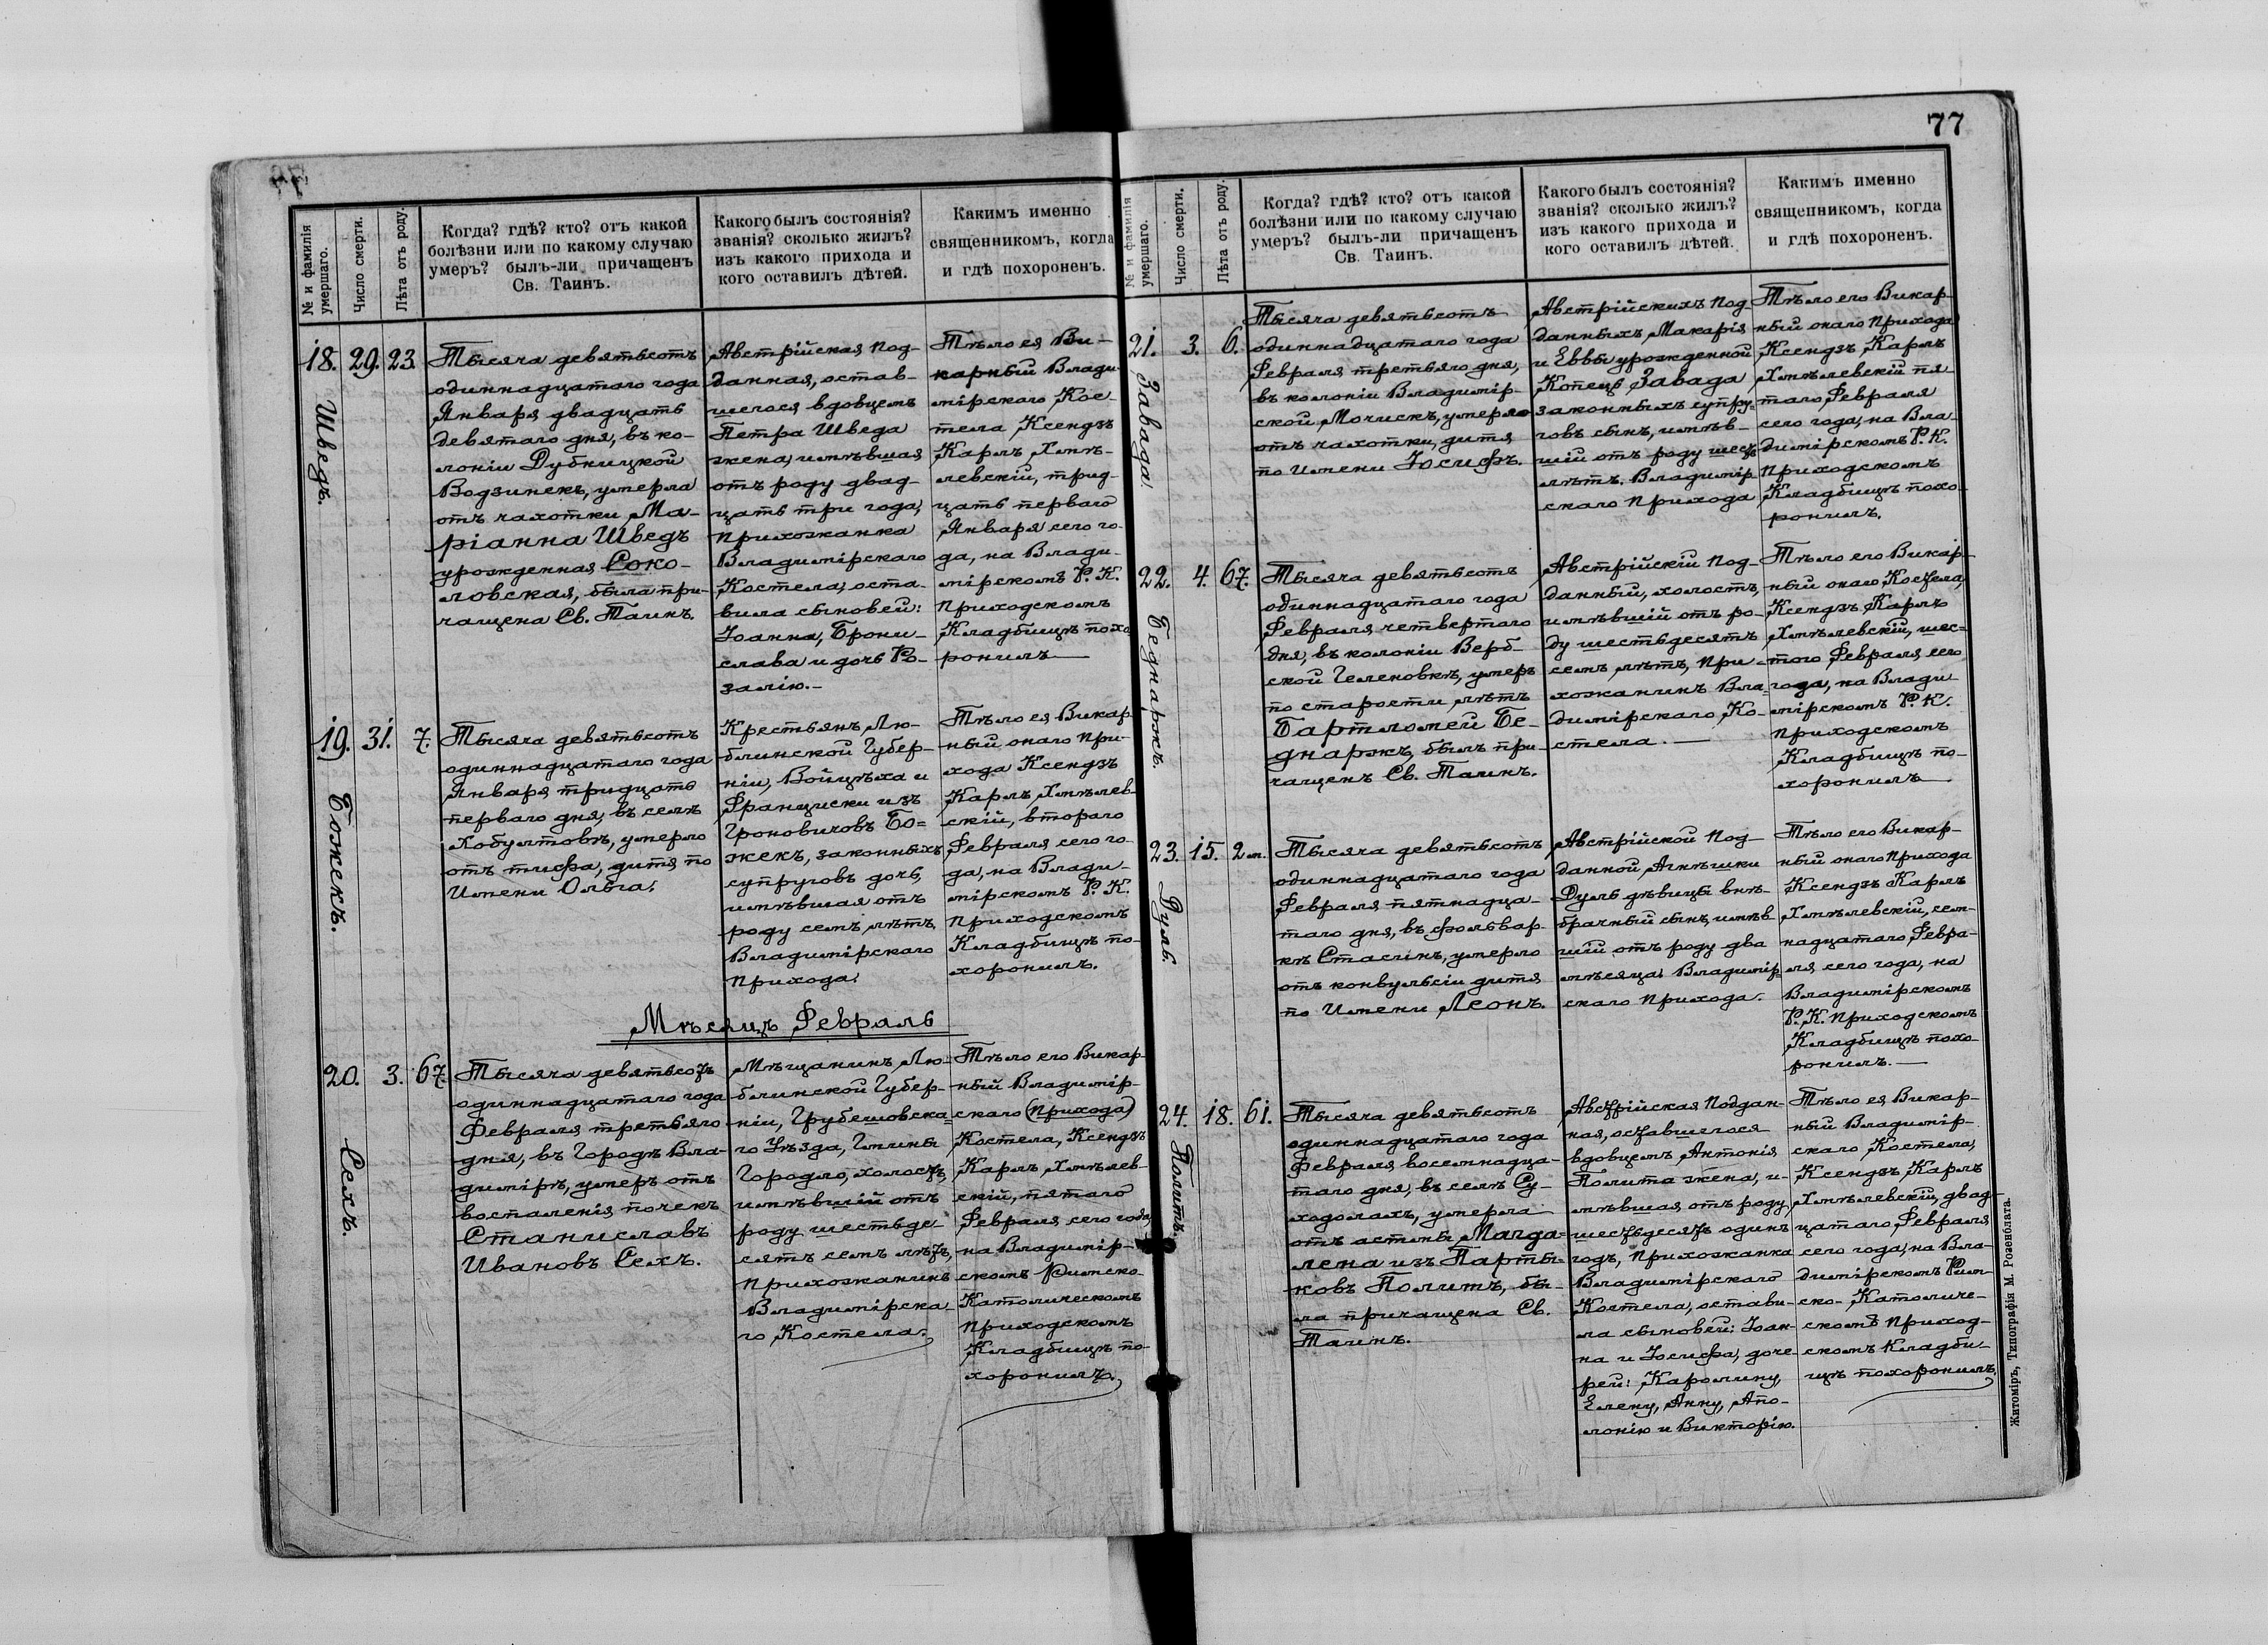 77
№ и фамилія
умершаго.
Число смерти.
Лѣта отъ роду.
Когда? гдѣ? кто? отъ какой
болѣзни или по какому случаю
умеръ? былъ-ли причащенъ
Св. Таинъ.
Какого былъ состоянія?
званія? сколько жилъ?
изъ какого прихода и
кого оставилъ дѣтей.
Какимъ именно
священникомъ, когда
и гдѣ похороненъ.
18. 29. 23.
Шведъ.
Тысяча девятьсотъ
одиннадцатаго года
Января двадцать
девятаго дня, въ ко-
лоніи Дубницкой
Водзинекъ, умерла
отъ чахотки Ма-
ріанна Шведъ
урожденная Соко-
ловская, была при-
чащена Св. Таинъ.
Австрійская под-
данная, остав-
шегося вдовцемъ
Петра Шведа
жена, имѣвшая
отъ роду двад-
цать три года,
прихожанка
Владимірскаго
Костела, оста-
вила сыновей:
Іоанна, Брони-
слава и дочь Ро-
залію.-
Тѣло ея Ви-
карный Влади-
мірскаго Кос-
тела Ксендзъ
Карлъ Хмѣ-
левскій, трид-
цать перваго
Января сего го-
да, на Влади-
мірскомъ Р. К.
приходскомъ
Кладбищѣ похо-
ронилъ
19. 31. 7.
Божекъ.
Тысяча девятьсотъ
одиннадцатаго года
Января тридцать
перваго дня, въ селѣ
Хобултовѣ, умерло
отъ тифа, дитя по
Имени Ольга.
Крестьянъ Лю-
блинской Губер-
ніи, Войцѣха и
Франциски изъ
Гроновичовъ Бо=
жекъ, законныхъ
супруговъ дочь,
имѣвшая отъ
роду семъ лѣтъ,
Владимірскаго
прихода.
Тѣло ея Викар-
ный онаго при-
хода Ксендзъ
Карлъ Хмѣлев-
скій, втораго
Февраля сего го-
да, на Влади-
мірскомъ Р. К.
приходскомъ
Кладбищѣ по-
хоронилъ.
Мѣсяцъ Февраль
20. 3. 67.
Сехъ.
Тысяча девятьсотъ
одиннадцатаго года
Февраля третьяго
дня, въ Городѣ Вла-
димірѣ, умеръ отъ
воспаленія почекъ
Станиславъ
Ивановъ Сехъ.
Мѣщанинъ Лю-
блинской Губер-
ніи, Грубешовска-
го Уѣзда, Гмины
Городло, холостъ,
имѣвшій отъ
роду шестьде-
сятъ семъ лѣтъ,
прихожанинъ
Владимірска-
го Костела.
Тѣло его Викар-
ный Владимір-
скаго (прихода)
Костела, Ксендзъ
Карлъ Хмѣлев-
скій, пятаго
Февраля сего года,
на Владимір-
скомъ Римско-
Католическомъ
приходскомъ
Кладбищѣ по-
хоронилъ.
№ и фамилія
умершаго.
Число смерти.
Лѣта отъ роду.
Когда? гдѣ? кто? отъ какой
болѣзни или по какому случаю
умеръ? былъ-ли причащенъ
Св. Таинъ.
Какого былъ состоянія?
званія? сколько жилъ?
изъ какого прихода и
кого оставилъ дѣтей.
Какимъ именно
священникомъ, когда
и гдѣ похороненъ.
21. 3. 6.
Завада
Тысяча девятьсотъ
одиннадцатаго года
Февраля третьяго дня,
въ колоніи Владимір-
ской Мочискъ, умерло
отъ чахотки, дитя
по Имени Іосифъ.
Австрійскихъ под-
данныхъ Макарія
и Еввы урожденной
Копецъ Завада
законныхъ супру-
говъ сынъ, имѣв-
шій отъ роду шесть
лѣтъ. Владимір-
скаго прихода
Тѣло его Викар-
ный онаго прихода
Ксендзъ Карлъ
Хмѣлевскій пя-
таго Февраля
сего года, на Вла-
димірскомъ Р. К.
приходскомъ
Кладбищѣ похо-
ронилъ.
22. 4. 67.
Беднаржъ.
Тысяча девятьсотъ
одиннадцатаго года
Февраля четвертаго
дня, въ колоніи Верб-
ской Геленовкѣ, умеръ
по старости лѣтъ
Бартломей Бе-
днаржъ, былъ при-
чащенъ Св. Таинъ.
Австрійскій под-
данный, холостъ,
имѣвшій отъ ро-
ду шестьдесятъ
семъ лѣтъ, при-
хожанинъ Вла-
димірскаго Ко-
стела.
Тѣло его Викар-
ный онаго Костела,
Ксендзъ Карлъ
Хмѣлевскій, шес-
того Февраля сего
года, на Влади-
мірскомъ Р. К.
приходскомъ
Кладбищѣ по-
хоронилъ
23. 15. 2 м.
Дуль.
Тысяча девятьсотъ
одиннадцатаго года
Февраля пятнадца-
таго дня, въ фольвар-
кѣ Стасинъ, умерло
отъ конвульсіи дитя
по Имени Леонъ.
Австрійской под-
данной Агнѣшки
Дуль дѣвицы внѣ-
брачный сынъ, имѣв-
шій отъ роду два
мѣсяца. Владимір-
скаго прихода.
Тѣло его Викар-
ный онаго прихода
Ксендзъ Карлъ
Хмѣлевскій, сем-
надцатаго Февра-
ля сего года, на
Владимірскомъ
Р. К. приходскомъ
Кладбищѣ похо-
ронилъ.
24. 18. 61.
Политъ.
Тысяча девятьсотъ
одиннадцатаго года
Февраля восемнадца-
таго дня, въ селѣ Су-
ходолахъ, умерла
отъ астмы Магда=
лена изъ Парты-
ковъ Политъ, бы-
ла причащена Св.
Таинъ.
Австрійская поддан-
ная, оставшегося
вдовцемъ Антонія
Полита жена, и-
мѣвшая отъ роду
шестьдесятъ одинъ
годъ, прихожанка
Владимірскаго
Костела, остави-
ла сыновей: Іоан-
на и Іосифа, доче-
рей: Каролину,
Елену, Анну, Апо-
лонію и Викторію.
Тѣло ея Викар-
ный Владимір-
скаго Костела,
Ксендзъ Карлъ
Хмѣлевскій, двад-
цатаго Февраля
сего года, на Вла-
димірскомъ Рим-
ско-Католиче-
скомъ приход-
скомъ Кладби-
щѣ похоронилъ.
Житоміръ, Типографія М. Розенблата.